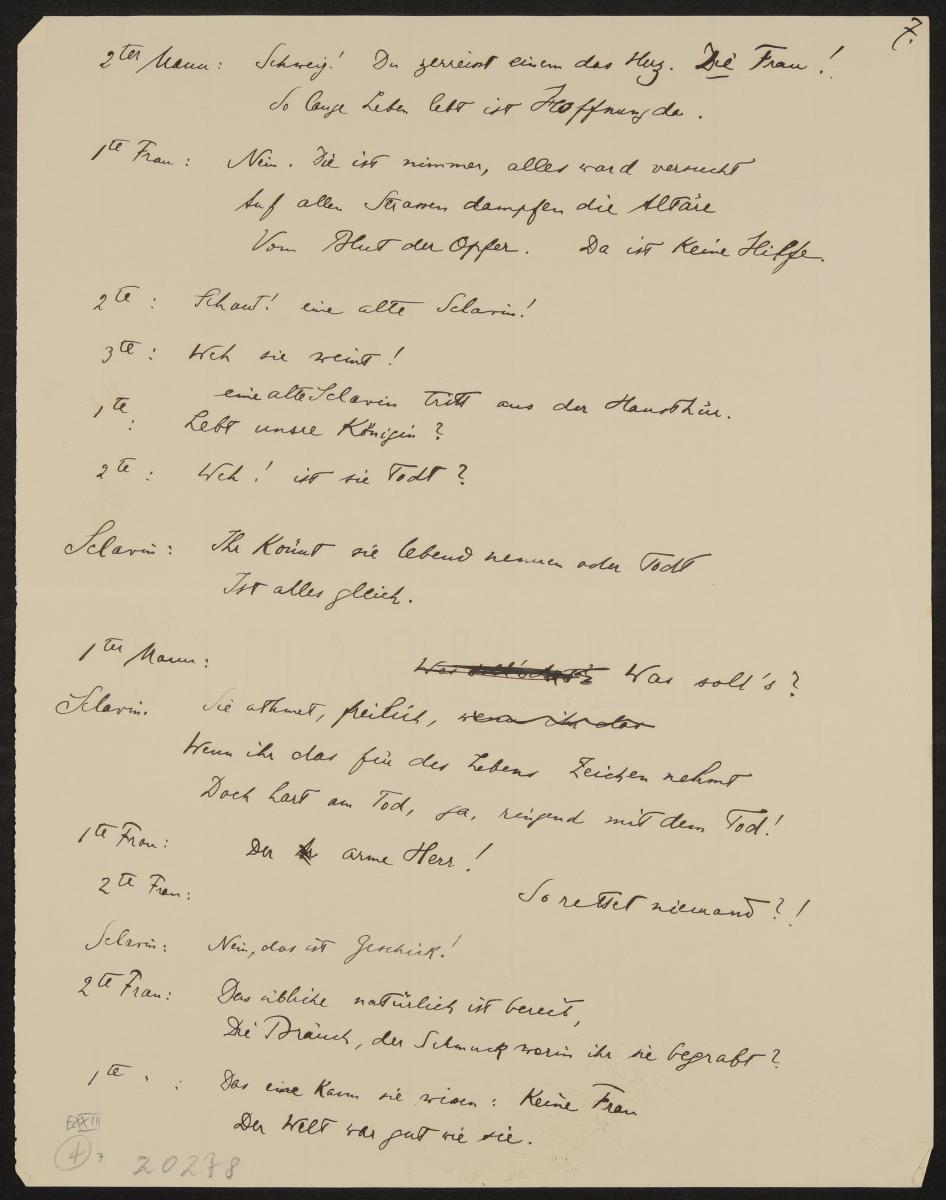 7.
2ter Mann: Schweig! Du zerreisst einem das Herz. Die Frau!
So lange Leben lebt ist Hoffnung da.
1te Frau: Nein. Die ist nimmer, alles ward versucht
Auf allen Strassen dampfen die Altäre
Vom Blut der Opfer. Da ist Keine Hilfe.
2te: Schaut! eine alte Sclavin!
3te: Weh sie weint!
eine alte Sclavin tritt aus der Hausthür.
1te: Lebt unsre Königin?
2te: Weh! ist sie Todt?
Sclavin: Ihr Könnt sie lebend nennen oder Todt
Ist alles gleich.
1ter Mann: Was soll's?
Sclavin. Sie athmet, freilich, wenn ihr das
Wenn ihr das für des Lebens Zeichen nehmt
Doch hart am Tod, ja, ringend mit dem Tod!
1te Frau: Der arme Herr!
2te Frau: So rettet niemand?!
Sclavin: Nein, das ist Geschick!
2te Frau: Das übliche natürlich ist bereit,
Die Bräuch, der Schmuck worin ihr sie begrabt?
1te " : Das eine Kann sie wissen: Keine Frau
Der Welt war gut wie sie.
EXXIII
4 7
20278